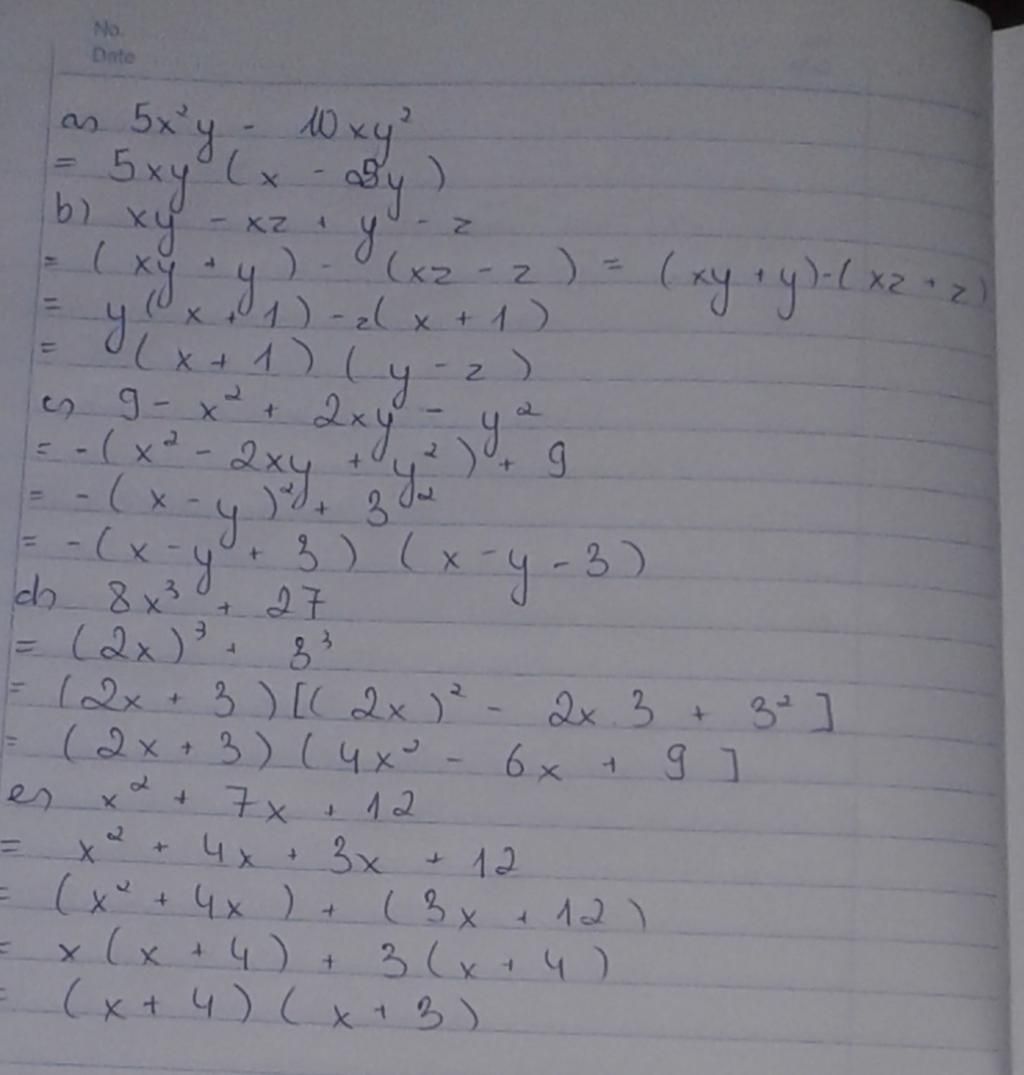 No.
Date
a) 5x²y - 10xy²
= 5xy (x - 2y)
b) xy - xz + y - z
= (xy + y) - (xz - z) = (xy + y) - (xz + z)
= y(x + 1) - z(x + 1)
= (x + 1) (y - z)
c) 9 - x² + 2xy - y²
= -(x² - 2xy + y²) + 9
= -(x - y)² + 3²
= -(x - y + 3) (x - y - 3)
d) 8x³ + 27
= (2x)³ + 3³
= (2x + 3)[(2x)² - 2x.3 + 3²]
= (2x + 3) (4x² - 6x + 9]
e) x² + 7x + 12
= x² + 4x + 3x + 12
= (x² + 4x) + (3x + 12)
= x(x + 4) + 3(x + 4)
= (x + 4) (x + 3)